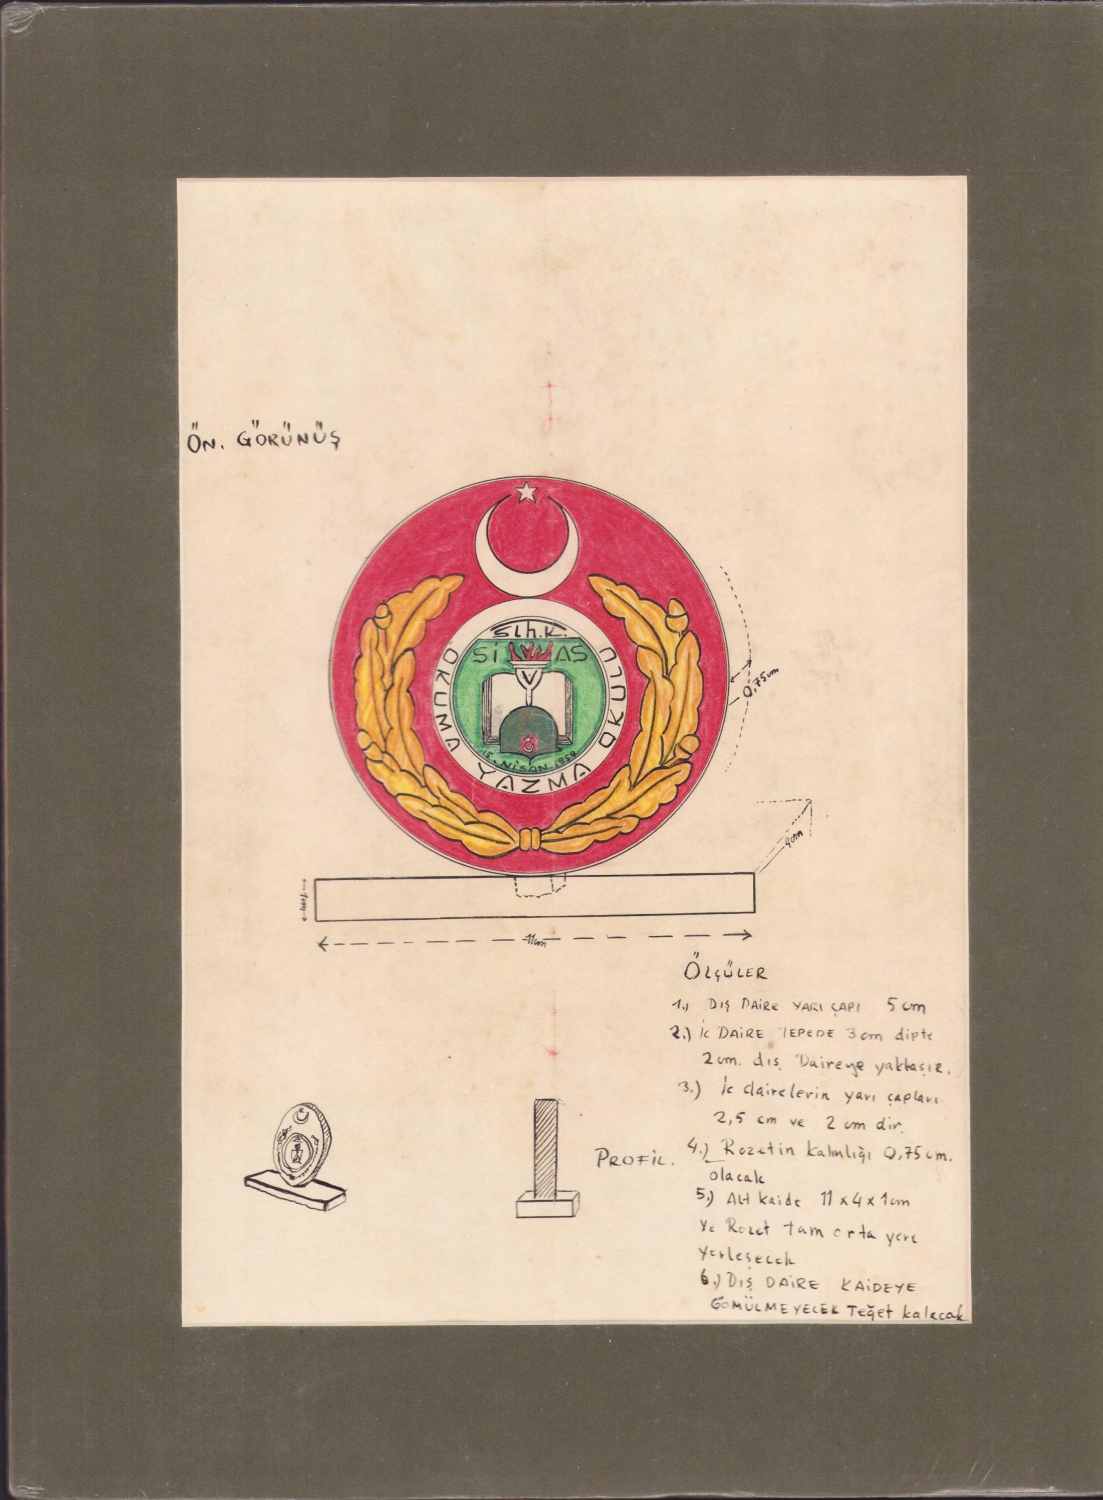 ÖN. GÖRÜNÜŞ
Slh.K.
SİVAS
15. NİSAN. 1959
OKUMA YAZMA OKULU
0,75 cm
4cm
1cm
11cm
ÖLÇÜLER
1.) DIŞ DAİRE YARI ÇAPI 5 cm
2.) İç DAİRE TEPEDE 3 cm dipte
2 cm. dış Daireye yaklaşır.
3.) İç dairelerin yarı çapları
2,5 cm ve 2 cm dir.
4.) Rozetin kalınlığı 0,75 cm.
olacak
PROFİL.
5.) Alt kaide 11 x 4 x 1 cm
Ve Rozet tam orta yere
yerleşecek
6.) DIŞ DAİRE KAİDEYE
GÖMÜLMEYECEK Teğet kalacak